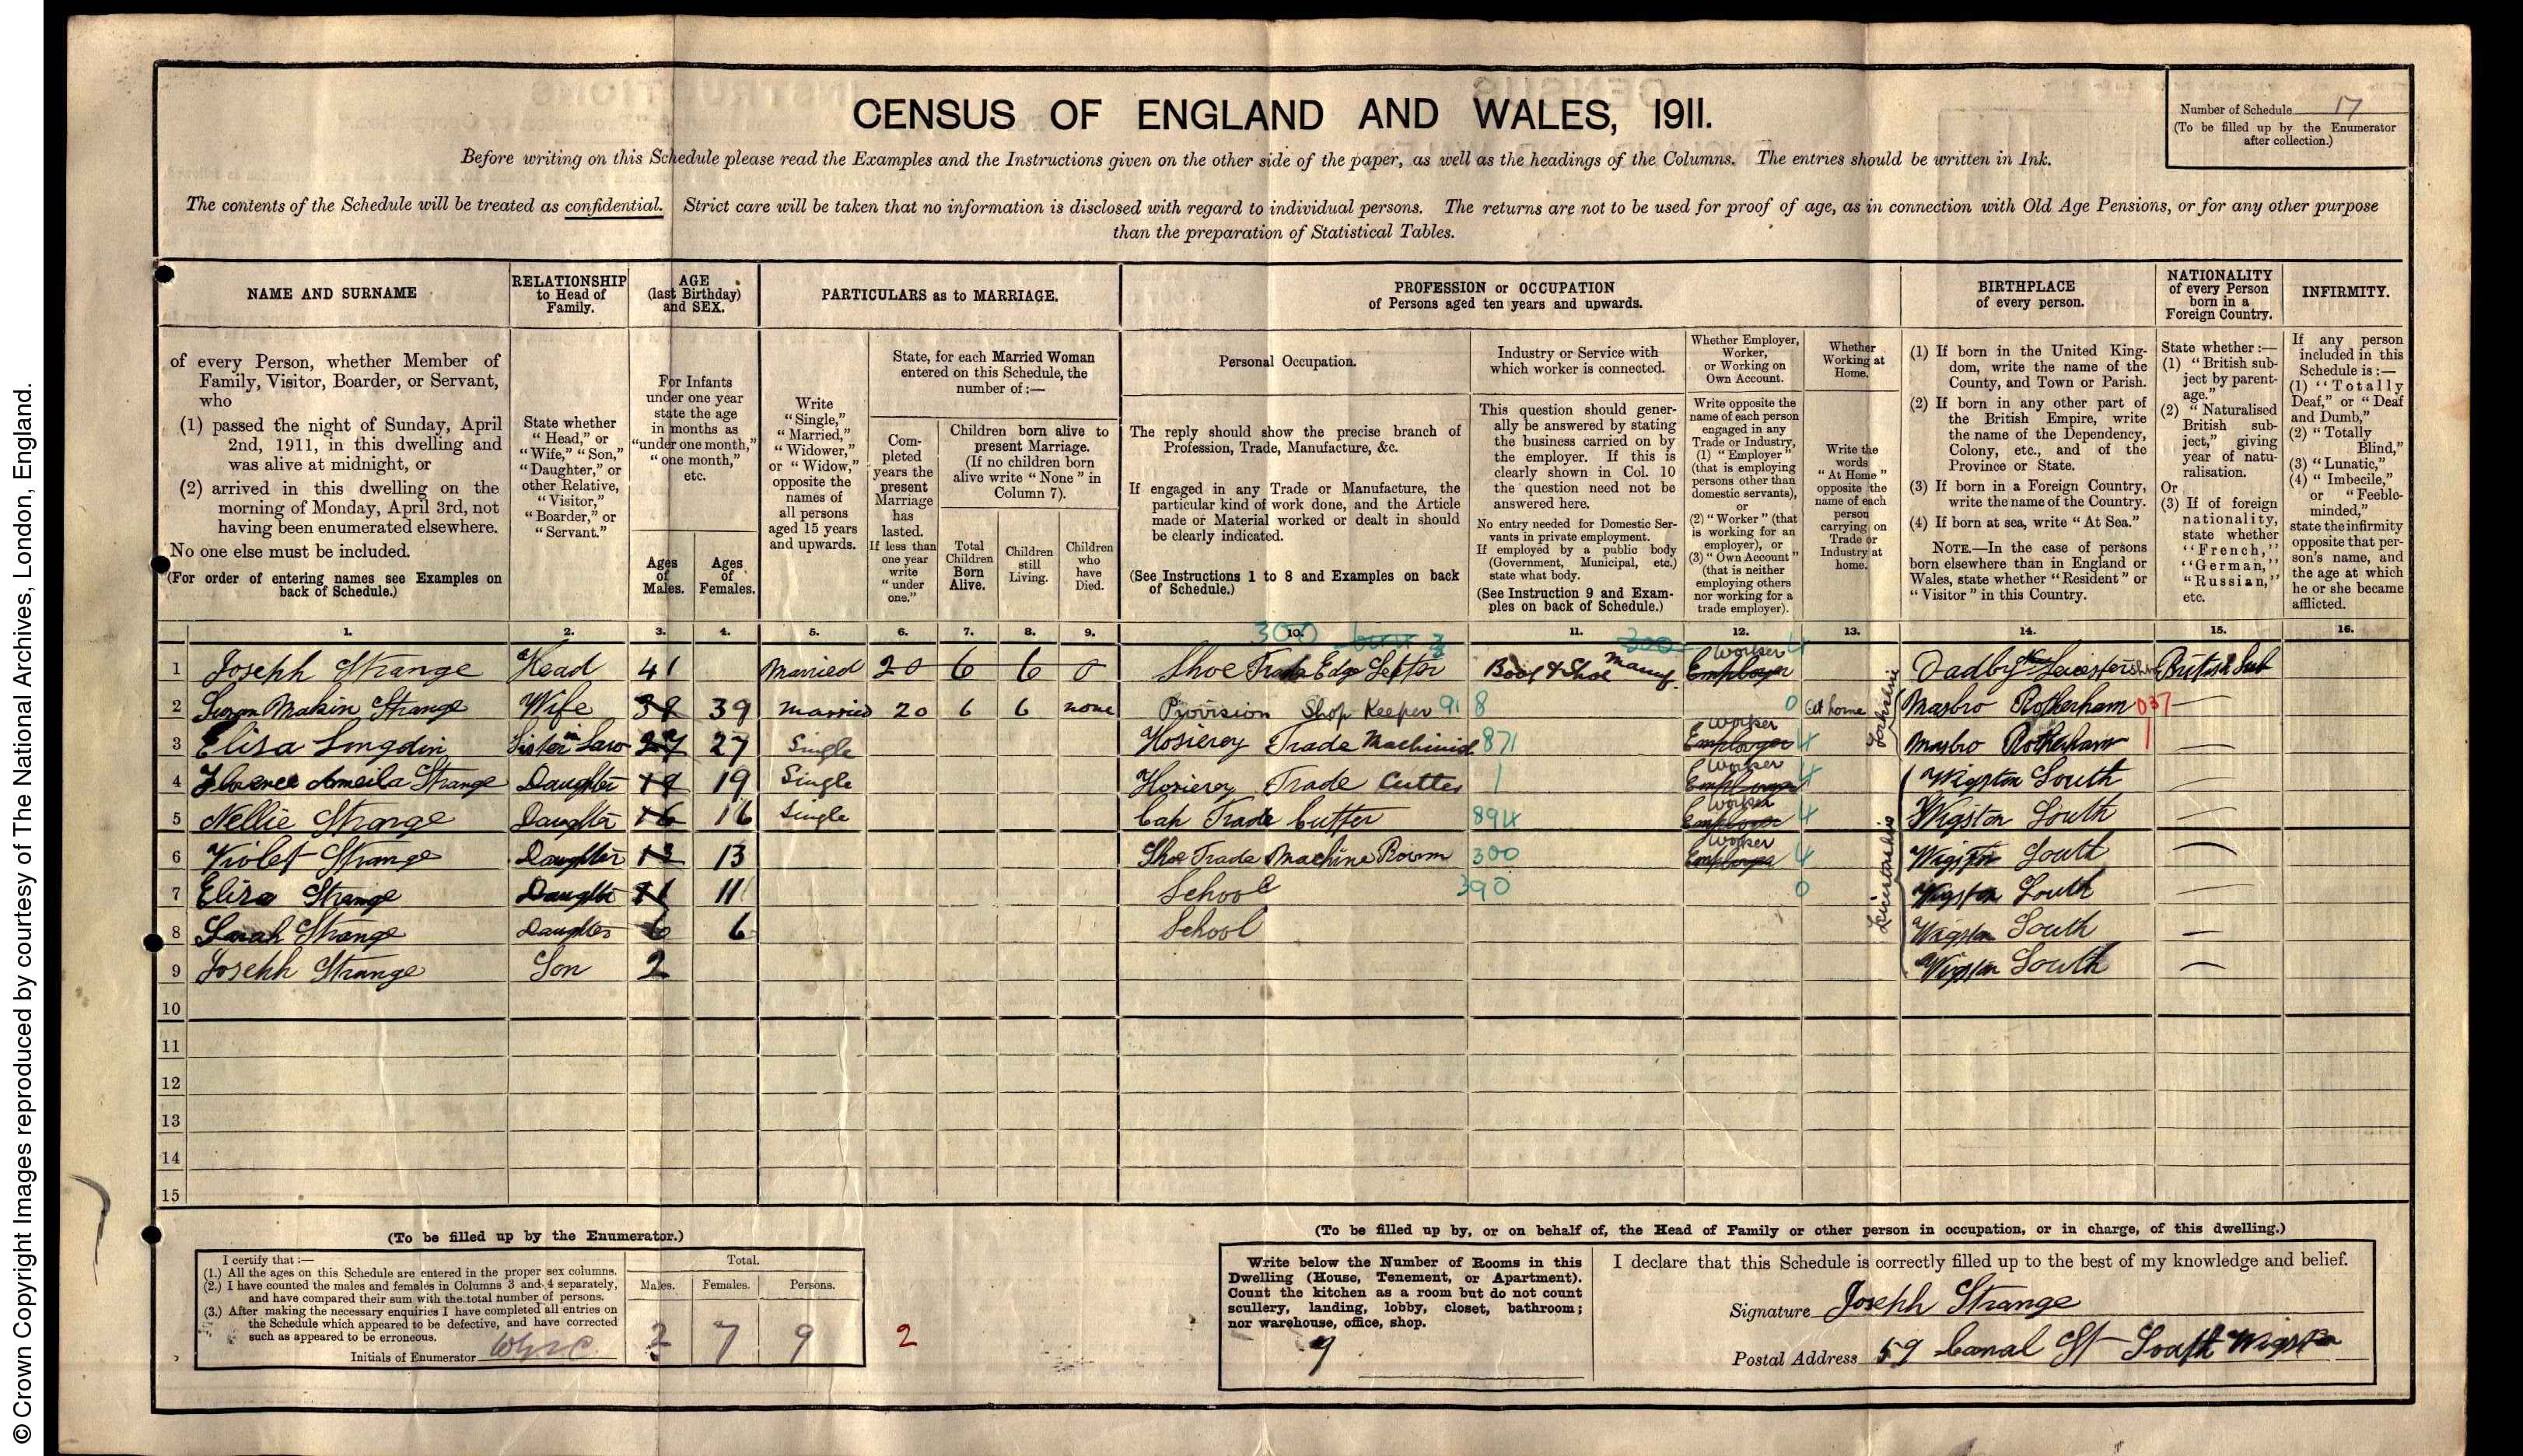 © Crown Copyright Images reproduced by courtesy of The National Archives, London, England.
CENSUS OF ENGLAND AND WALES, 1911.
Number of Schedule 17
(To be filled up by the Enumerator after collection.)
Before writing on this Schedule please read the Examples and the Instructions given on the other side of the paper, as well as the headings of the Columns. The entries should be written in Ink.
The contents of the Schedule will be treated as confidential. Strict care will be taken that no information is disclosed with regard to individual persons. The returns are not to be used for proof of age, as in connection with Old Age Pensions, or for any other purpose
than the preparation of Statistical Tables.
NAME AND SURNAME
of every Person, whether Member of
Family, Visitor, Boarder, or Servant,
who
(1) passed the night of Sunday, April
2nd, 1911, in this dwelling and
was alive at midnight, or
(2) arrived in this dwelling on the
morning of Monday, April 3rd, not
having been enumerated elsewhere.
No one else must be included.
(For order of entering names see Examples on
back of Schedule.)
RELATIONSHIP
to Head of
Family.
State whether
"Head," or
"Wife," "Son,"
"Daughter," or
other Relative,
"Visitor,"
"Boarder," or
"Servant."
AGE
(last Birthday)
and SEX.
For Infants
under one year
state the age
in months as
"under one month,"
"one month,"
etc.
Ages
of
Males.
Ages
of
Females.
PARTICULARS as to MARRIAGE.
Write
"Single,"
"Married,"
"Widower,"
or "Widow,"
opposite the
names of
all persons
aged 15 years
and upwards.
State, for each Married Woman
entered on this Schedule, the
number of:—
Com-
pleted
years the
present
Marriage
has
lasted.
If less than
one year
write
"under
one."
Children born alive to
present Marriage.
(If no children born
alive write "None" in
Column 7).
Total
Children
Born
Alive.
Children
still
Living.
Children
who
have
Died.
PROFESSION or OCCUPATION
of Persons aged ten years and upwards.
Personal Occupation.
The reply should show the precise branch of
Profession, Trade, Manufacture, &c.
If engaged in any Trade or Manufacture, the
particular kind of work done, and the Article
made or Material worked or dealt in should
be clearly indicated.
(See Instructions 1 to 8 and Examples on back
of Schedule.)
Industry or Service with
which worker is connected.
This question should gener-
ally be answered by stating
the business carried on by
the employer. If this is
clearly shown in Col. 10
the question need not be
answered here.
No entry needed for Domestic Ser-
vants in private employment.
If employed by a public body
(Government, Municipal, etc.)
state what body.
(See Instruction 9 and Exam-
ples on back of Schedule.)
Whether Employer,
Worker,
or Working on
Own Account.
Write opposite the
name of each person
engaged in any
Trade or Industry,
(1) "Employer"
(that is employing
persons other than
domestic servants),
or
(2) "Worker" (that
is working for an
employer), or
(3) "Own Account"
(that is neither
employing others
nor working for a
trade employer).
Whether
Working at
Home.
Write the
words
"At Home"
opposite the
name of each
person
carrying on
Trade or
Industry at
home.
BIRTHPLACE
of every person.
(1) If born in the United King-
dom, write the name of the
County, and Town or Parish.
(2) If born in any other part of
the British Empire, write
the name of the Dependency,
Colony, etc., and of the
Province or State.
(3) If born in a Foreign Country,
write the name of the Country.
(4) If born at sea, write "At Sea."
NOTE.—In the case of persons
born elsewhere than in England or
Wales, state whether "Resident" or
"Visitor" in this Country.
NATIONALITY
of every Person
born in a
Foreign Country.
State whether:—
(1) "British sub-
ject by parent-
age."
(2) "Naturalised
British sub-
ject," giving
year of natu-
ralisation.
Or
(3) If of foreign
nationality,
state whether
"French,"
"German,"
"Russian,"
etc.
INFIRMITY.
If any person
included in this
Schedule is:—
(1) "Totally
Deaf," or "Deaf
and Dumb,"
(2) "Totally
Blind,"
(3) "Lunatic,"
(4) "Imbecile,"
or "Feeble-
minded,"
state the infirmity
opposite that per-
son's name, and
the age at which
he or she became
afflicted.
1. 2. 3. 4. 5. 6. 7. 8. 9. 10. 11. 12. 13. 14. 15. 16.
300 3 300 4
1 Joseph Strange Head 41 Married 20 6 6 0 Shoe Trade Edge Setter Boot & Shoe Manuf. Employer Worker Leicester British Sub
2 Makin Strange Wife 39 married 20 6 6 none Provision Shop Keeper 918 0 At home Masbro Rotherham 037 —
3 Eliza Longdin Sister in Law 27 27 Single Hosierey Trade Machinist 871 Employer Worker 4 Masbro Rotherham —
4 Florence Ameila Strange Daughter 19 19 Single Hosierey Trade Cutter 1 Worker 4 Wigston South —
5 Nellie Strange Daughter 16 16 Single Cap Trade Cutter 894 Worker 4 Wigston South —
6 Violet Strange Daughter 13 13 Shoe Trade Machine Room 300 Worker 4 Wigston South —
7 Eliza Strange Daughter 11 11 School 390 0 Wigston South —
8 Sarah Strange Daughter 6 6 School Wigston South —
9 Joseph Strange Son 2 Wigston South —
Yorkshire
Leicestershire
10
11
12
13
14
15
(To be filled up by the Enumerator.)
I certify that:—
(1.) All the ages on this Schedule are entered in the proper sex columns.
(2.) I have counted the males and females in Columns 3 and 4 separately,
and have compared their sum with the total number of persons.
(3.) After making the necessary enquiries I have completed all entries on
the Schedule which appeared to be defective, and have corrected
such as appeared to be erroneous.
Initials of Enumerator
Total.
Males. Females. Persons.
2 7 9
2
(To be filled up by, or on behalf of, the Head of Family or other person in occupation, or in charge, of this dwelling.)
Write below the Number of Rooms in this
Dwelling (House, Tenement, or Apartment).
Count the kitchen as a room but do not count
scullery, landing, lobby, closet, bathroom;
nor warehouse, office, shop.
I declare that this Schedule is correctly filled up to the best of my knowledge and belief.
Signature Joseph Strange
Postal Address 59 Canal St South Wigston